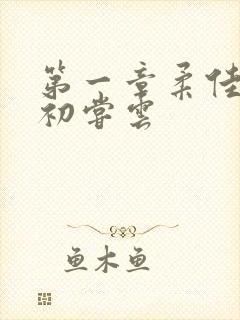 第一章柔佳
初嘗雲
鱼木鱼